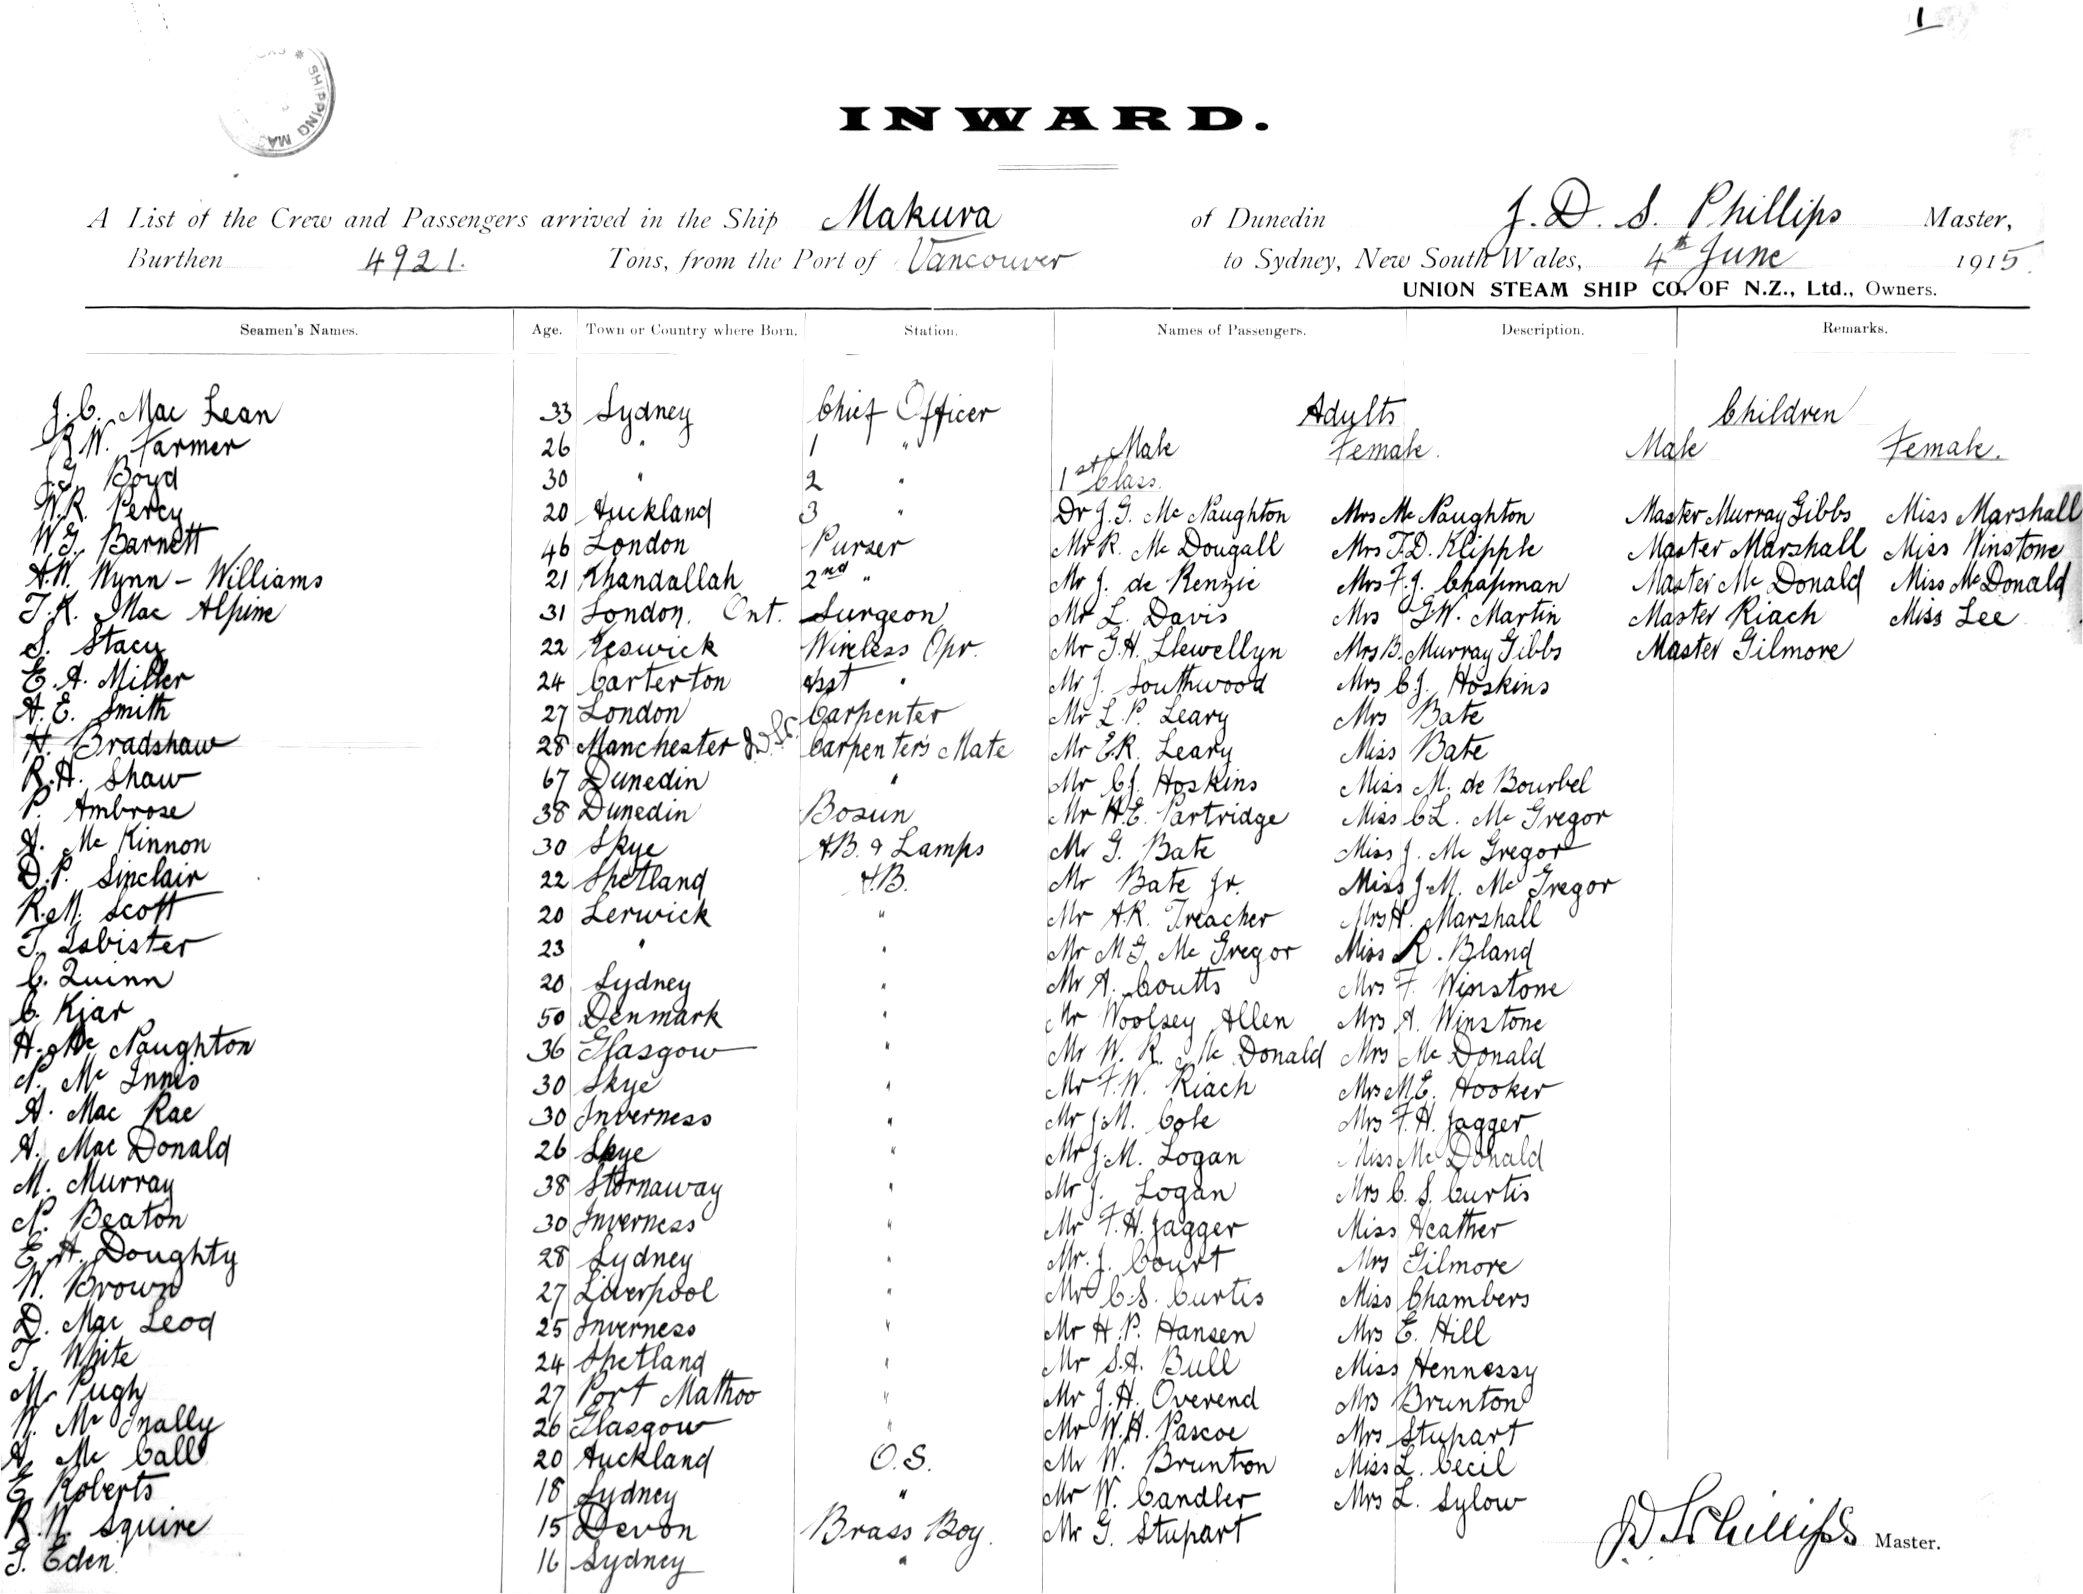 1
SHIPPING MAS
INWARD.
A List of the Crew and Passengers arrived in the Ship Makura of Dunedin J. D. S. Phillips Master,
Burthen 4921. Tons, from the Port of Vancouver to Sydney, New South Wales, 4th June 1915.
UNION STEAM SHIP CO. OF N.Z., Ltd., Owners.
Seamen's Names. Age. Town or Country where Born. Station. Names of Passengers. Description. Remarks.
J. C. Mac Lean 33 Sydney Chief Officer Adults Children
R.W. Farmer 26 " 1 " Male Female. Male Female.
J.G. Boyd 30 " 2 " 1st Class.
W.R. Percy 20 Auckland 3 " Dr J. G. Mc Naughton Mrs Mc Naughton Master Murray Gibbs Miss Marshall
W.G. Barnett 46 London Purser Mr R. Mc Dougall Mrs F.D. Klipple Master Marshall Miss Winstone
A.W. Wynn - Williams 21 Khandallah 2nd " Mr J. de Renzie Mrs F.J. Chapman Master Mc Donald Miss Mc Donald
T.K. Mac Alpine 31 London. Ont. Surgeon Mr L. Davis Mrs G.W. Martin Master Riach Miss Lee
S. Stacy 22 Keswick Wireless Opr. Mr G.H. Llewellyn Mrs B. Murray Gibbs Master Gilmore
E. A. Miller 24 Carterton Asst " Mr J. Southwood Mrs C.J. Hoskins
A. E. Smith 27 London Carpenter Mr L. P. Leary Mrs Bate
H. Bradshaw 28 Manchester Carpenter's Mate Mr E.R. Leary Miss Bate
R.H. Shaw 67 Dunedin " Mr C.J. Hoskins Miss M. de Bourbel
P. Ambrose 38 Dunedin Bosun Mr H.E. Partridge Miss C.L. Mc Gregor
A. Mc Kinnon 30 Skye A.B. & Lamps Mr G. Bate Miss J. Mc Gregor
D.P. Sinclair 22 Shetland A.B. Mr Bate Jr. Miss J.M. Mc Gregor
R.M. Scott 20 Lerwick " Mr A.R. Treacher Mrs H. Marshall
T. Isbister 23 " " Mr M.G. Mc Gregor Miss R. Bland
C. Quinn 20 Sydney " Mr A. Coutts Mrs F. Winstone
C. Kjar 50 Denmark " Mr Woolsey Allen Mrs A. Winstone
H. Mc Naughton 36 Glasgow " Mr W. R. Mc Donald Mrs Mc Donald
N. Mc Innis 30 Skye " Mr F.W. Riach Mrs M.E. Hooker
A. Mac Rae 30 Inverness " Mr J.M. Cole Mrs F.H. Jagger
A. Mac Donald 26 Skye " Mr J.M. Logan Miss Mc Donald
M. Murray 38 Stornaway " Mr J. Logan Mrs C. S. Curtis
N. Beaton 30 Inverness " Mr F.H. Jagger Miss Heather
E. A. Doughty 28 Sydney " Mr. J. Court Mrs Gilmore
W. Brown 27 Liverpool " Mr C.S. Curtis Miss Chambers
D. Mac Leod 25 Inverness " Mr H.P. Hansen Mrs E. Hill
T. White 24 Shetland " Mr S.A. Bull Miss Hennessy
M. Pugh 27 Port Mathoo " Mr J.H. Overend Mrs Brunton
W. Mc Inally 26 Glasgow " Mr W.H. Pascoe Mrs Stupart
A. Mc Call 20 Auckland O.S. Mr W. Brunton Miss L. Cecil
E. Roberts 18 Sydney " Mr W. Candler Mrs L. Sylow
R.W. Squire 15 Devon Brass Boy. Mr G. Stupart J D S Phillips Master.
G. Eden. 16 Sydney "